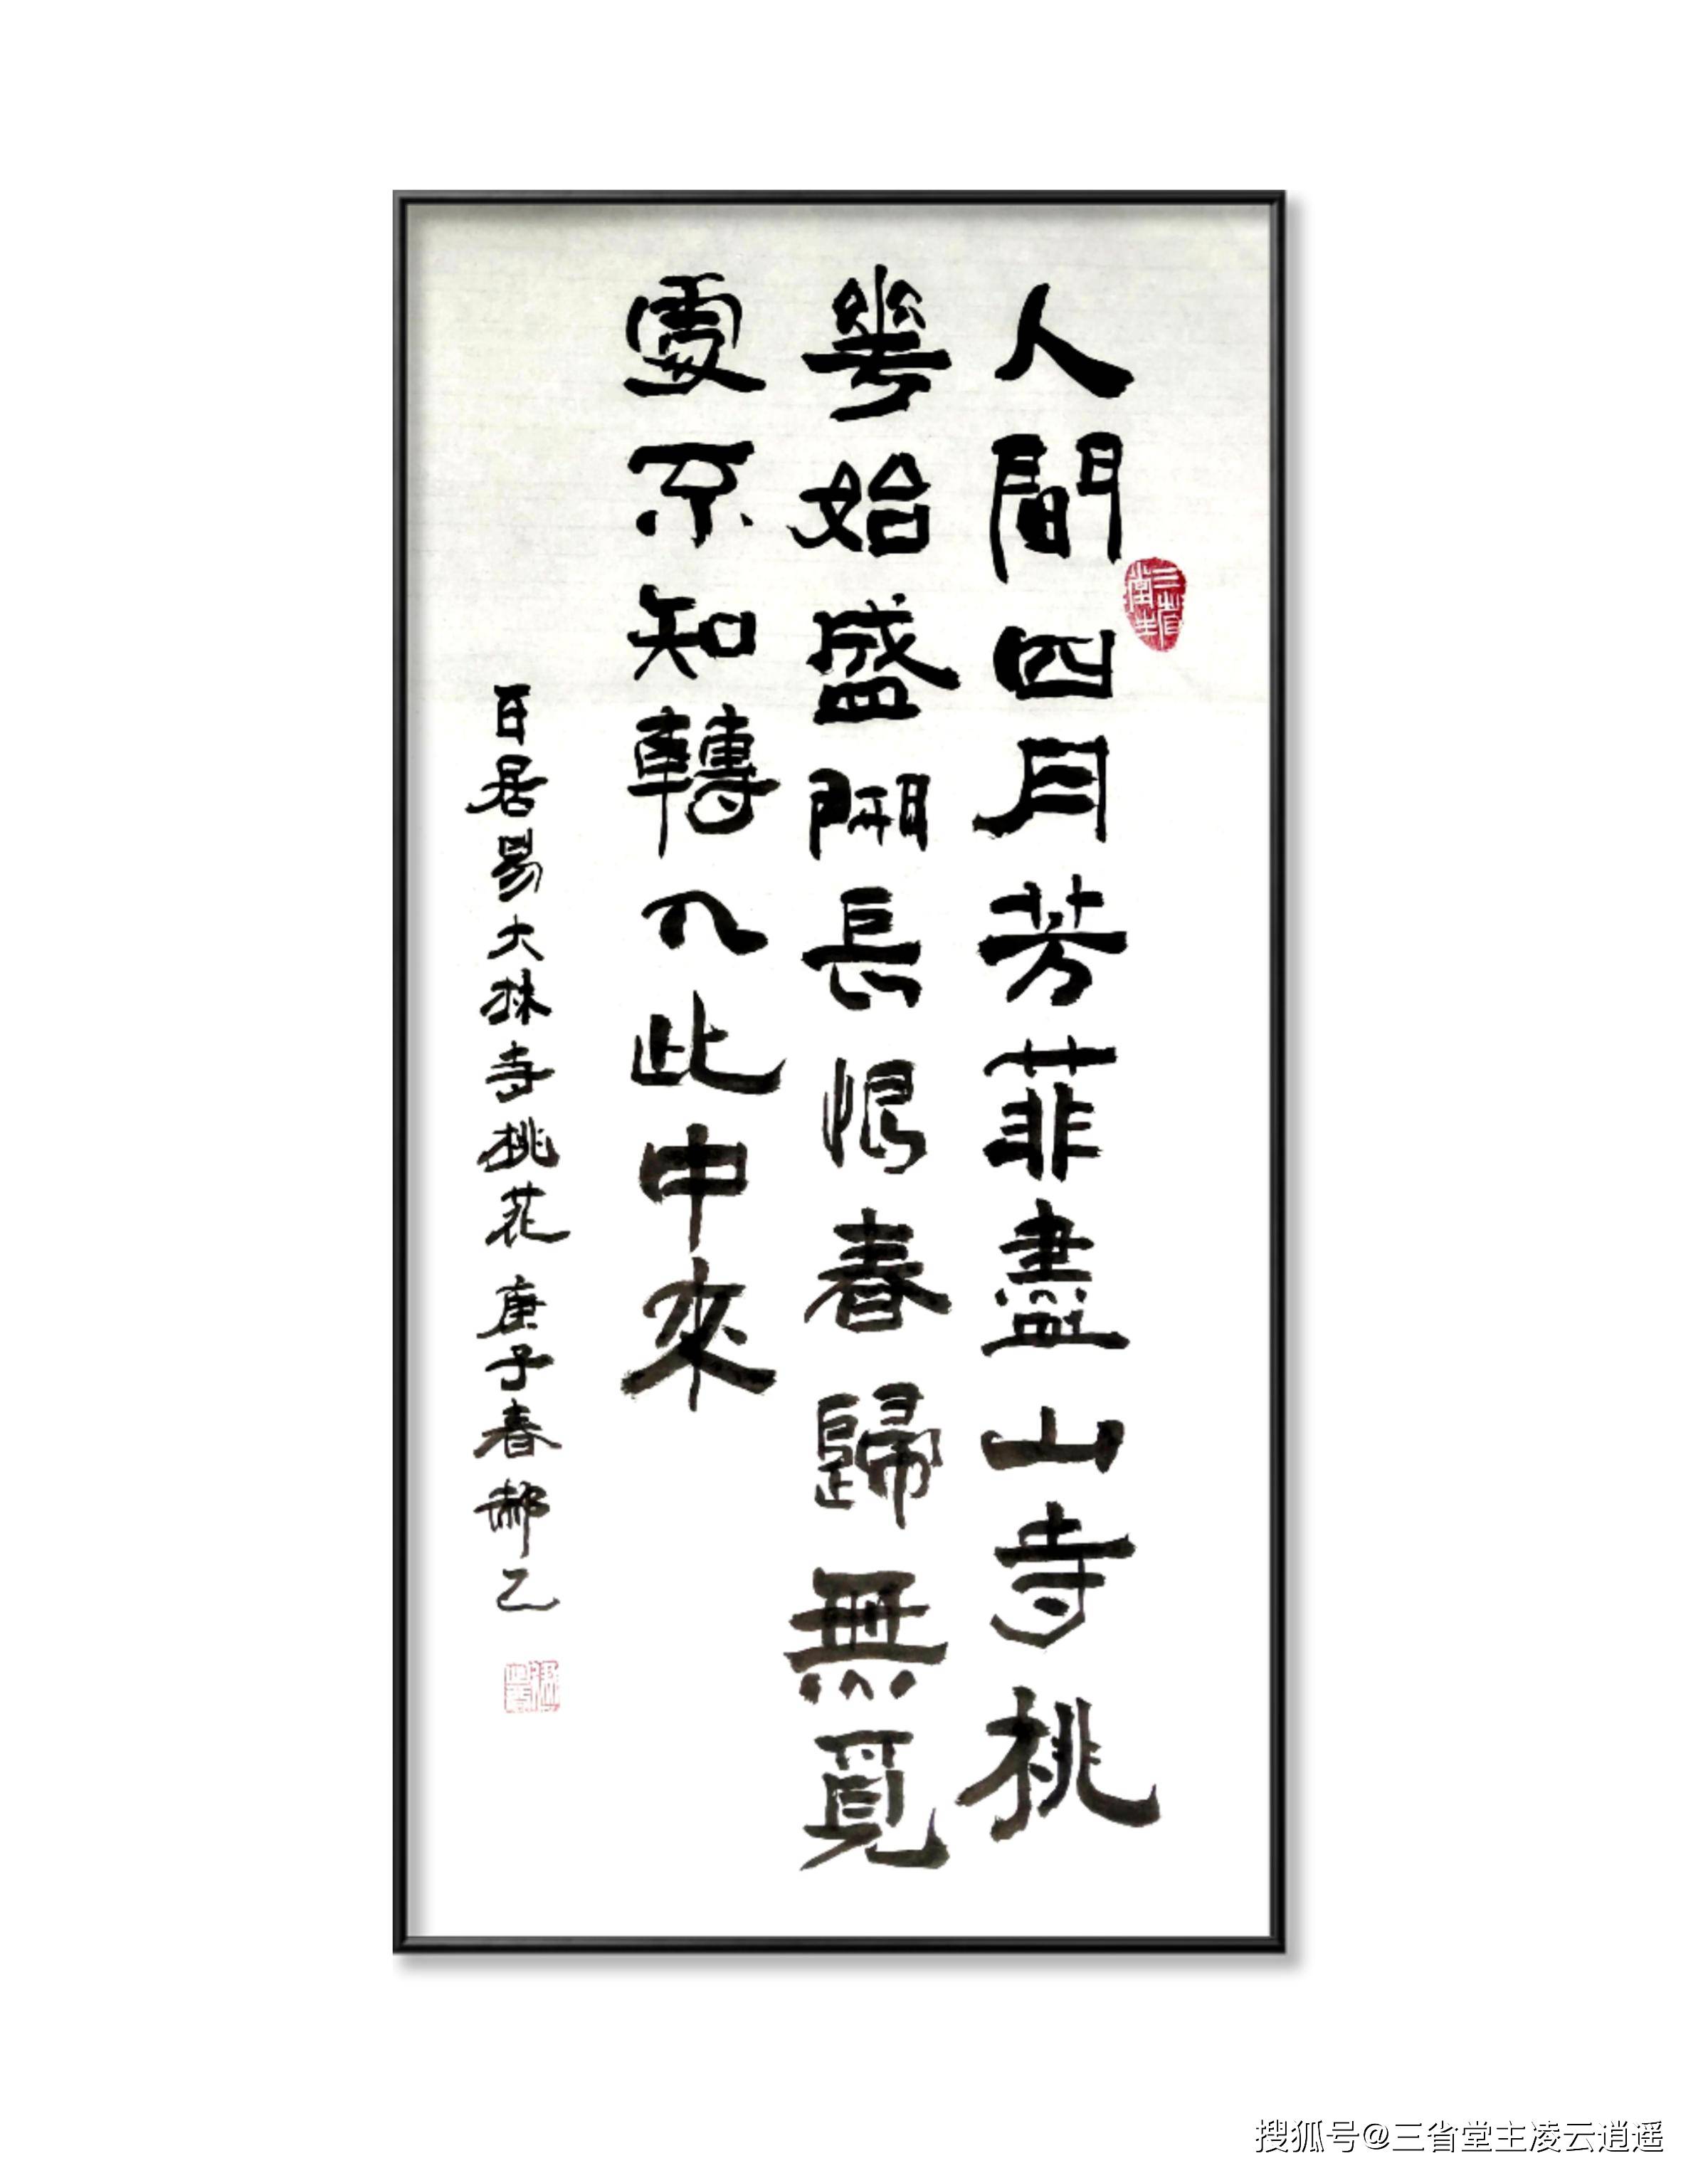 人間四月芳菲盡山寺桃
華始盛開長恨春歸無覓
處不知轉入此中來
白居易大林寺桃花 庚子春郝乙
三省堂主
搜狐号@三省堂主凌云逍遥